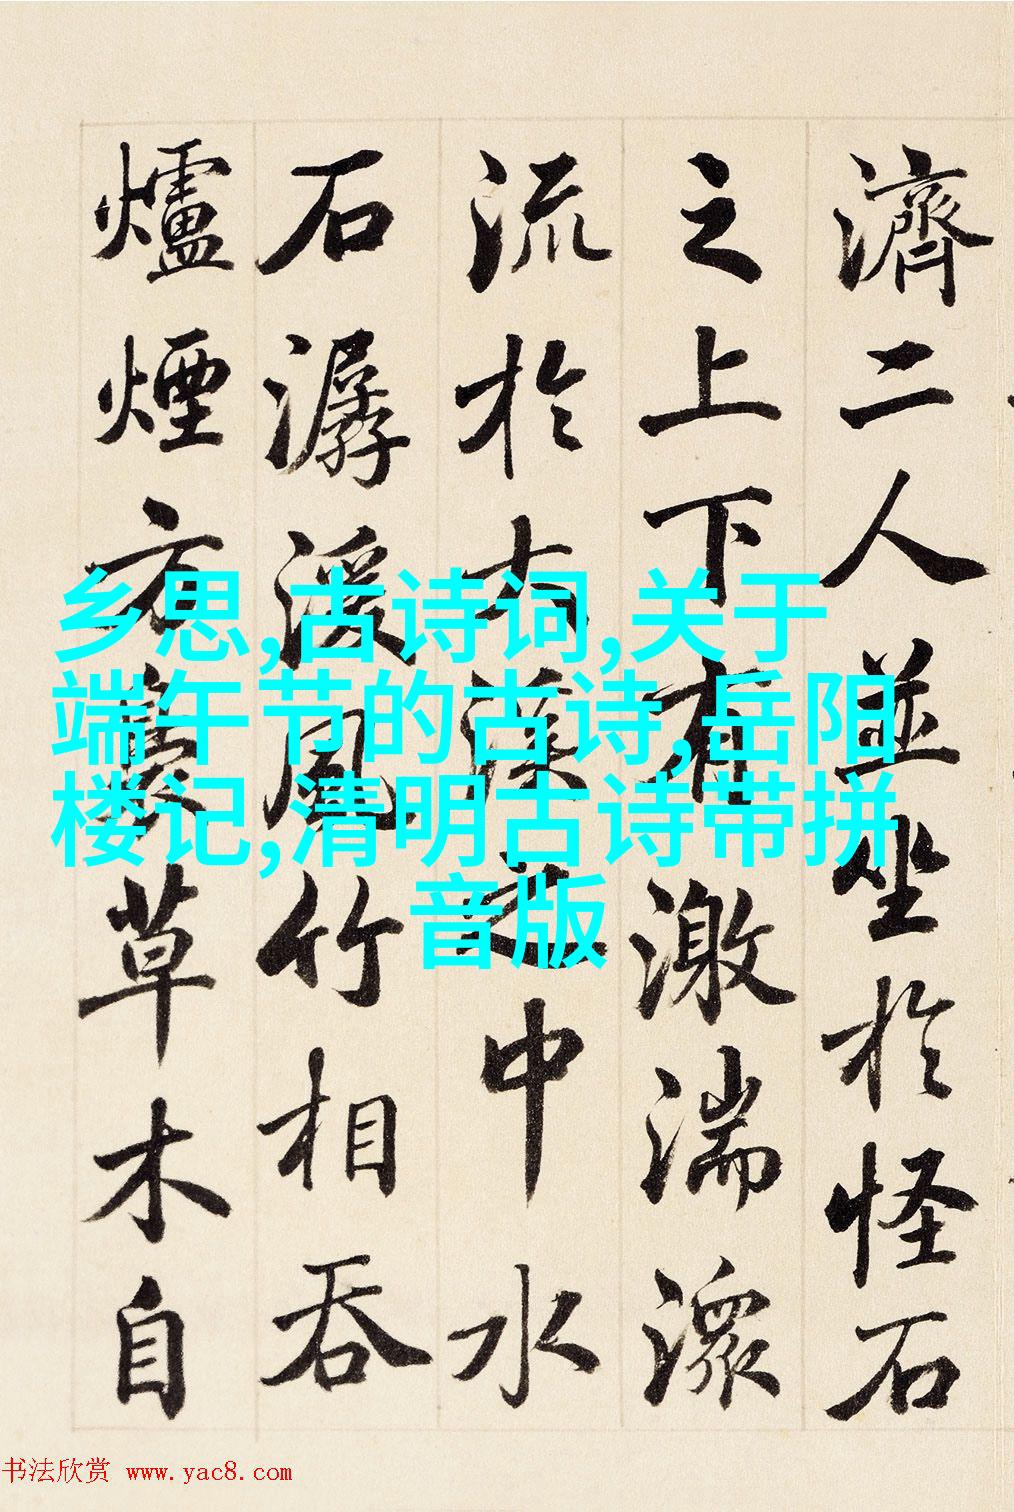 濟二人並坐於怪石
之上下有激湍潀
流於大溪之中水
石潺湲風竹相吞
爐煙方裊草木自
乡思,古诗词,关于
端午节的古诗,岳阳
楼记,清明古诗带拼
音版
书法欣赏 www.yac8.com